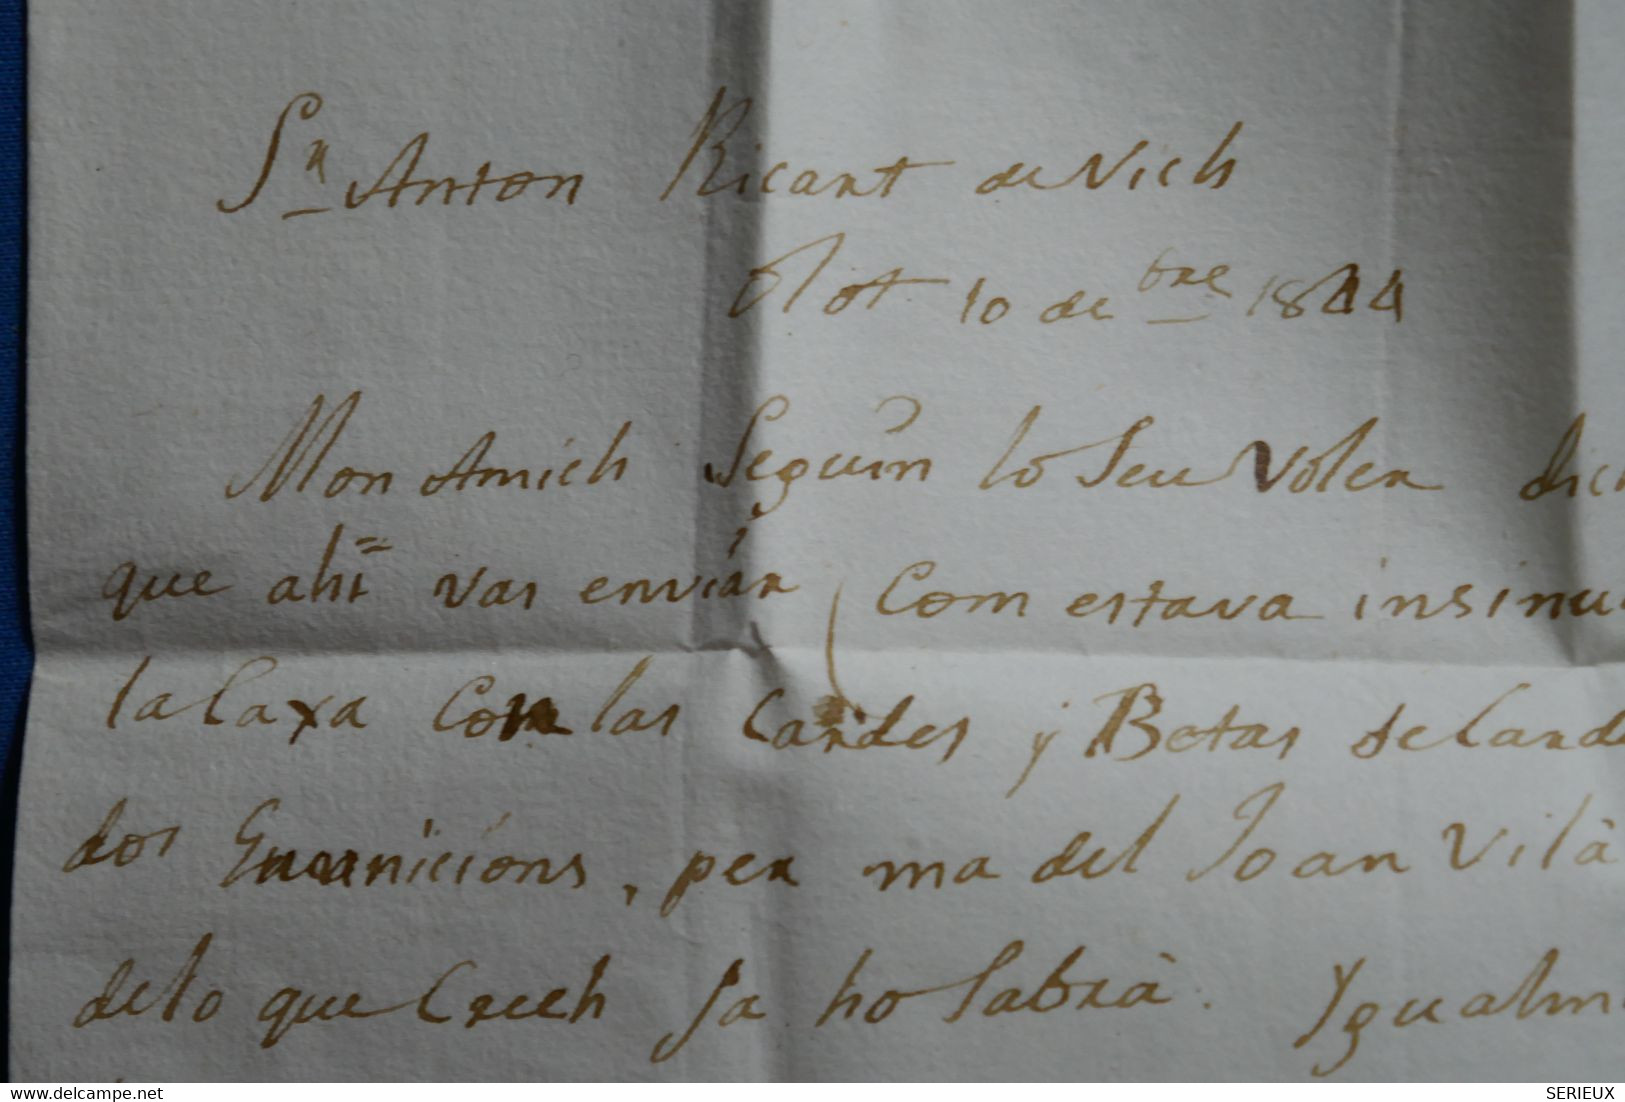 Sn Anton Ricart de Vich
Olot 10 de bre 1844
Mon Amich Seguin lo Seu Voler dich
que ahi vas enviar Com estava insinu
la Caxa Com las Cardes y Botas de Card
dos Guarnicions, per ma del Joan Vilà
de lo que Crech Ja ho Sabrà. Ygualm
SERIEUX